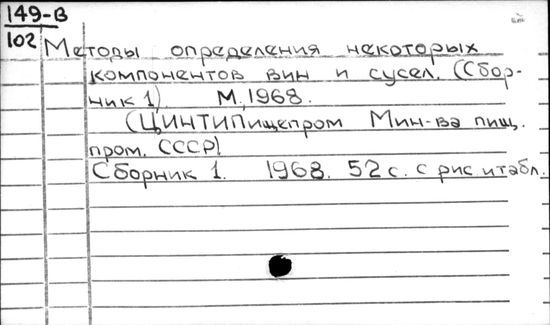 149-В
102
Методы определения некоторых
компонентов вин и сусел. (Сбор-
ник 1). М., 1968.
(ЦИНТИПищепром Мин-ва пищ.
пром. СССР).
Сборник 1. 1968. 52 с. с рис. и табл.